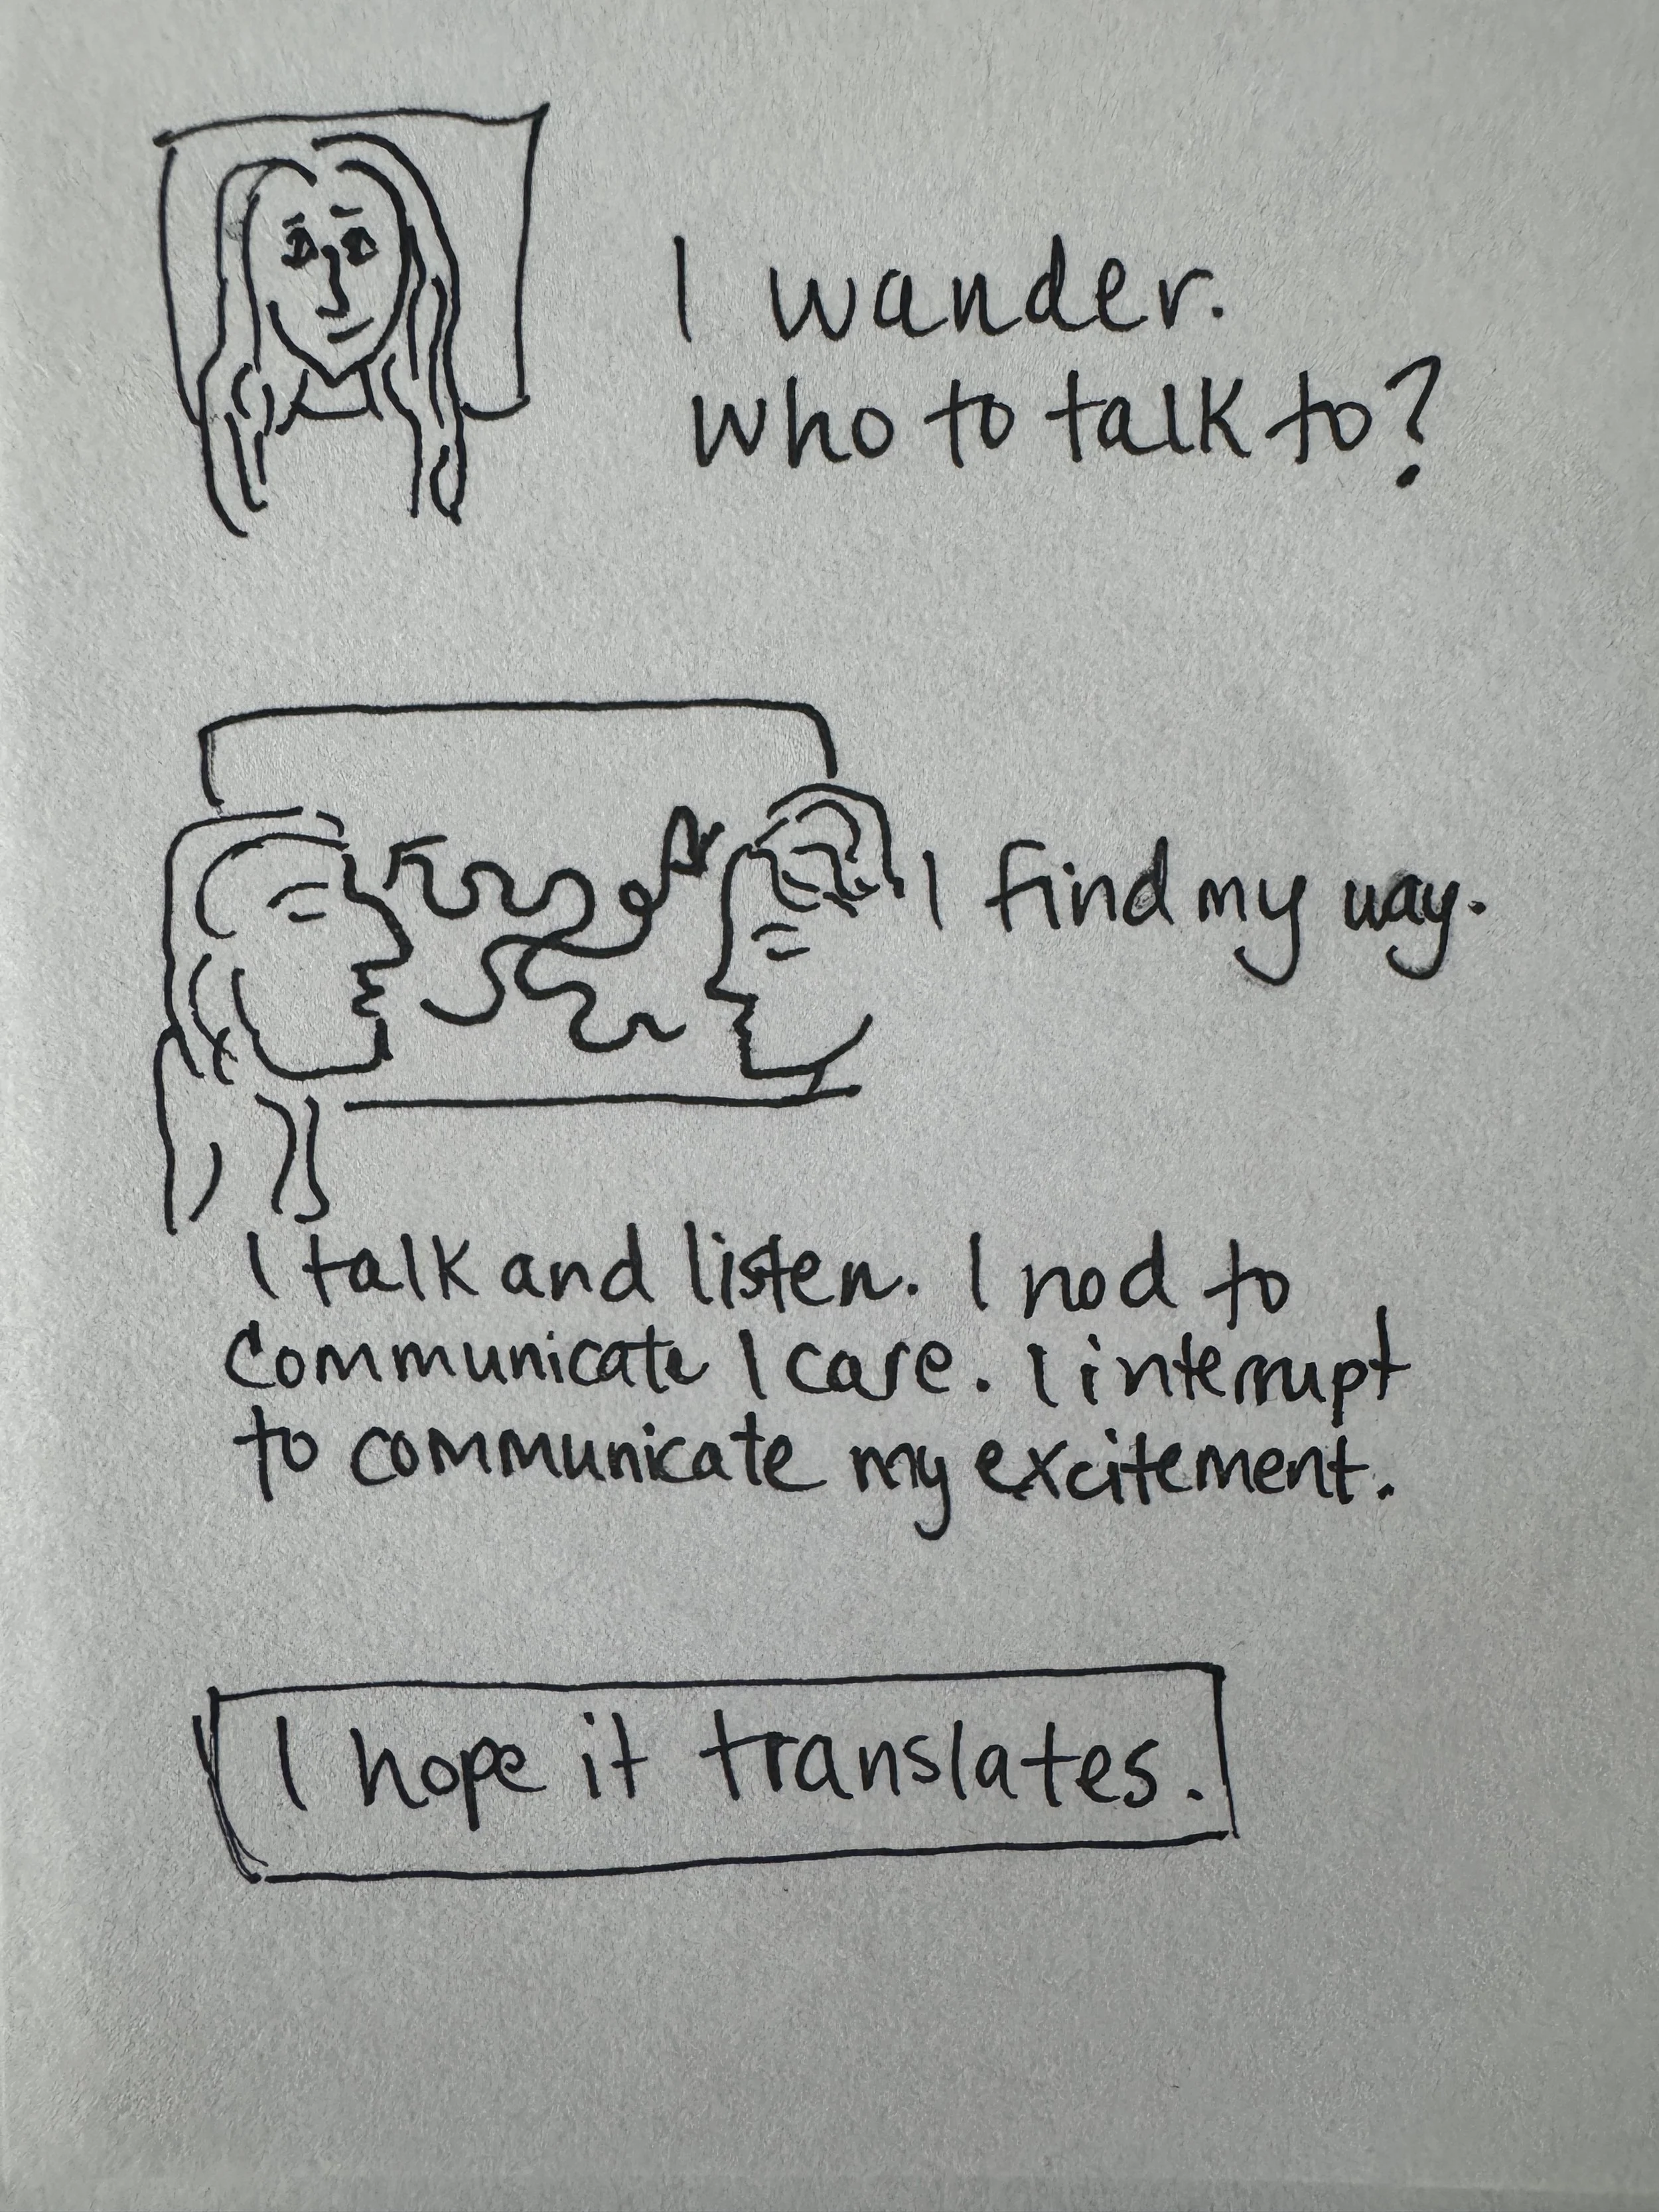 I wander.
Who to talk to?
I find my way.
I talk and listen. I nod to
communicate I care. I interrupt
to communicate my excitement.
I hope it translates.